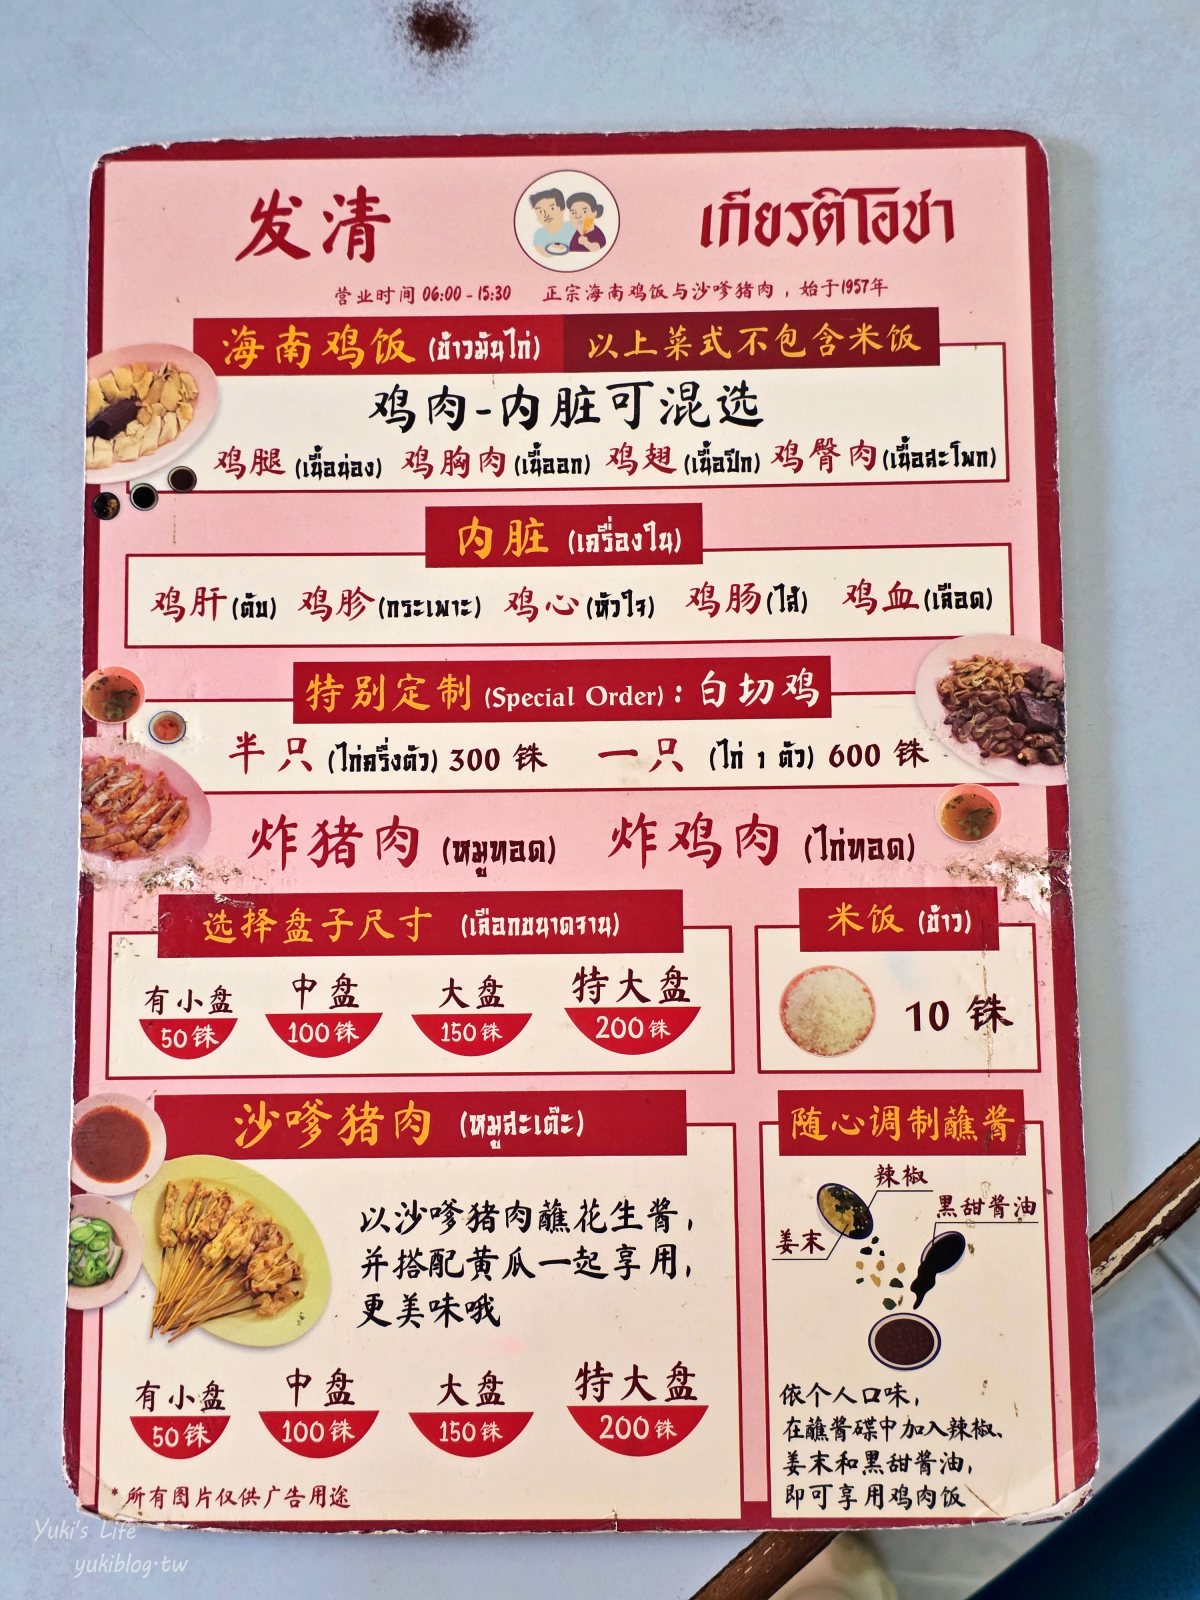 发清 เกียรติโอชา
营业时间 06:00 - 15:30 正宗海南鸡饭与沙嗲猪肉，始于1957年
海南鸡饭 (ข้าวมันไก่) 以上菜式不包含米饭
鸡肉-内脏可混选
鸡腿 (เนื้อน่อง) 鸡胸肉 (เนื้ออก) 鸡翅 (เนื้อปีก) 鸡臀肉 (เนื้อสะโพก)
内脏 (เครื่องใน)
鸡肝 (ตับ) 鸡胗 (กระเพาะ) 鸡心 (หัวใจ) 鸡肠 (ไส้) 鸡血 (เลือด)
特别定制 (Special Order) : 白切鸡
半只 (ไก่ครึ่งตัว) 300 铢 一只 (ไก่ 1 ตัว) 600 铢
炸猪肉 (หมูทอด) 炸鸡肉 (ไก่ทอด)
选择盘子尺寸 (เลือกขนาดจาน)
有小盘 中盘 大盘 特大盘
50 铢 100 铢 150 铢 200 铢
米饭 (ข้าว)
10 铢
沙嗲猪肉 (หมูสะเต๊ะ)
以沙嗲猪肉蘸花生酱，
并搭配黄瓜一起享用，
更美味哦
有小盘 中盘 大盘 特大盘
50 铢 100 铢 150 铢 200 铢
* 所有图片仅供广告用途
随心调制蘸酱
辣椒
黑甜酱油
姜末
依个人口味，
在蘸酱碟中加入辣椒、
姜末和黑甜酱油，
即可享用鸡肉饭
Yuki's Life
yukiblog.tw